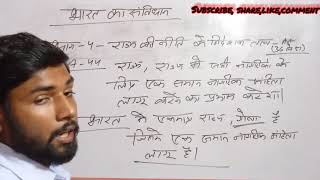 SUBSCRIBE, SHARE,LIKE,COMMENT
भारत का संविधान
भाग-4- राज्य की नीति के निदेशक तत्व- Art (36 से 51)
44- राज्य, राज्य के सभी नागरिकों के
लिए एक समान नागरिक संहिता
लागू करने का प्रयास करेगा।
भारत के एकमात्र राज्य, गोवा है
जिसमें एक समान नागरिक संहिता
लागू है।